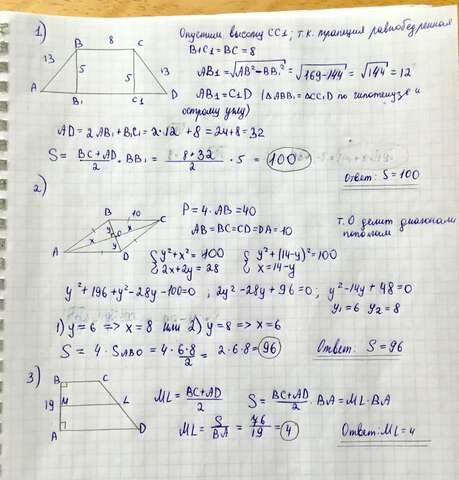 1)
Опустим высоту CC1; т.к. трапеция равнобедренная
B1C1 = BC = 8
AB1 = √AB² - BB1² = √169-144 = √144 = 12
AB1 = C1D (ΔABB1 = ΔCC1D по гипотенузе и
острому углу)
B 8 C
13 5 5 13
A B1 C1 D
AD = 2AB1 + B1C1 = 2·12 + 8 = 24+8 = 32
S = BC+AD/2 · BB1 = 8+32/2 · 5 = 100
Ответ: S = 100
2)
B 10 C
y x O x y
A D
P = 4·AB = 40
AB = BC = CD = DA = 10
т. О делит диагонали
пополам
{ y² + x² = 100 { y² + (14-y)² = 100
2x + 2y = 28 x = 14-y
y² + 196 + y² - 28y - 100 = 0 ; 2y² - 28y + 96 = 0 ; y² - 14y + 48 = 0
y1 = 6 y2 = 8
1) y = 6 => x = 8 или 2) y = 8 => x = 6
S = 4·SABO = 4·6·8/2 = 2·6·8 = 96
Ответ: S = 96
3)
B C
19 M L
A D
ML = BC+AD/2 S = BC+AD/2 · BA = ML·BA
ML = S/BA = 76/19 = 4
Ответ: ML = 4